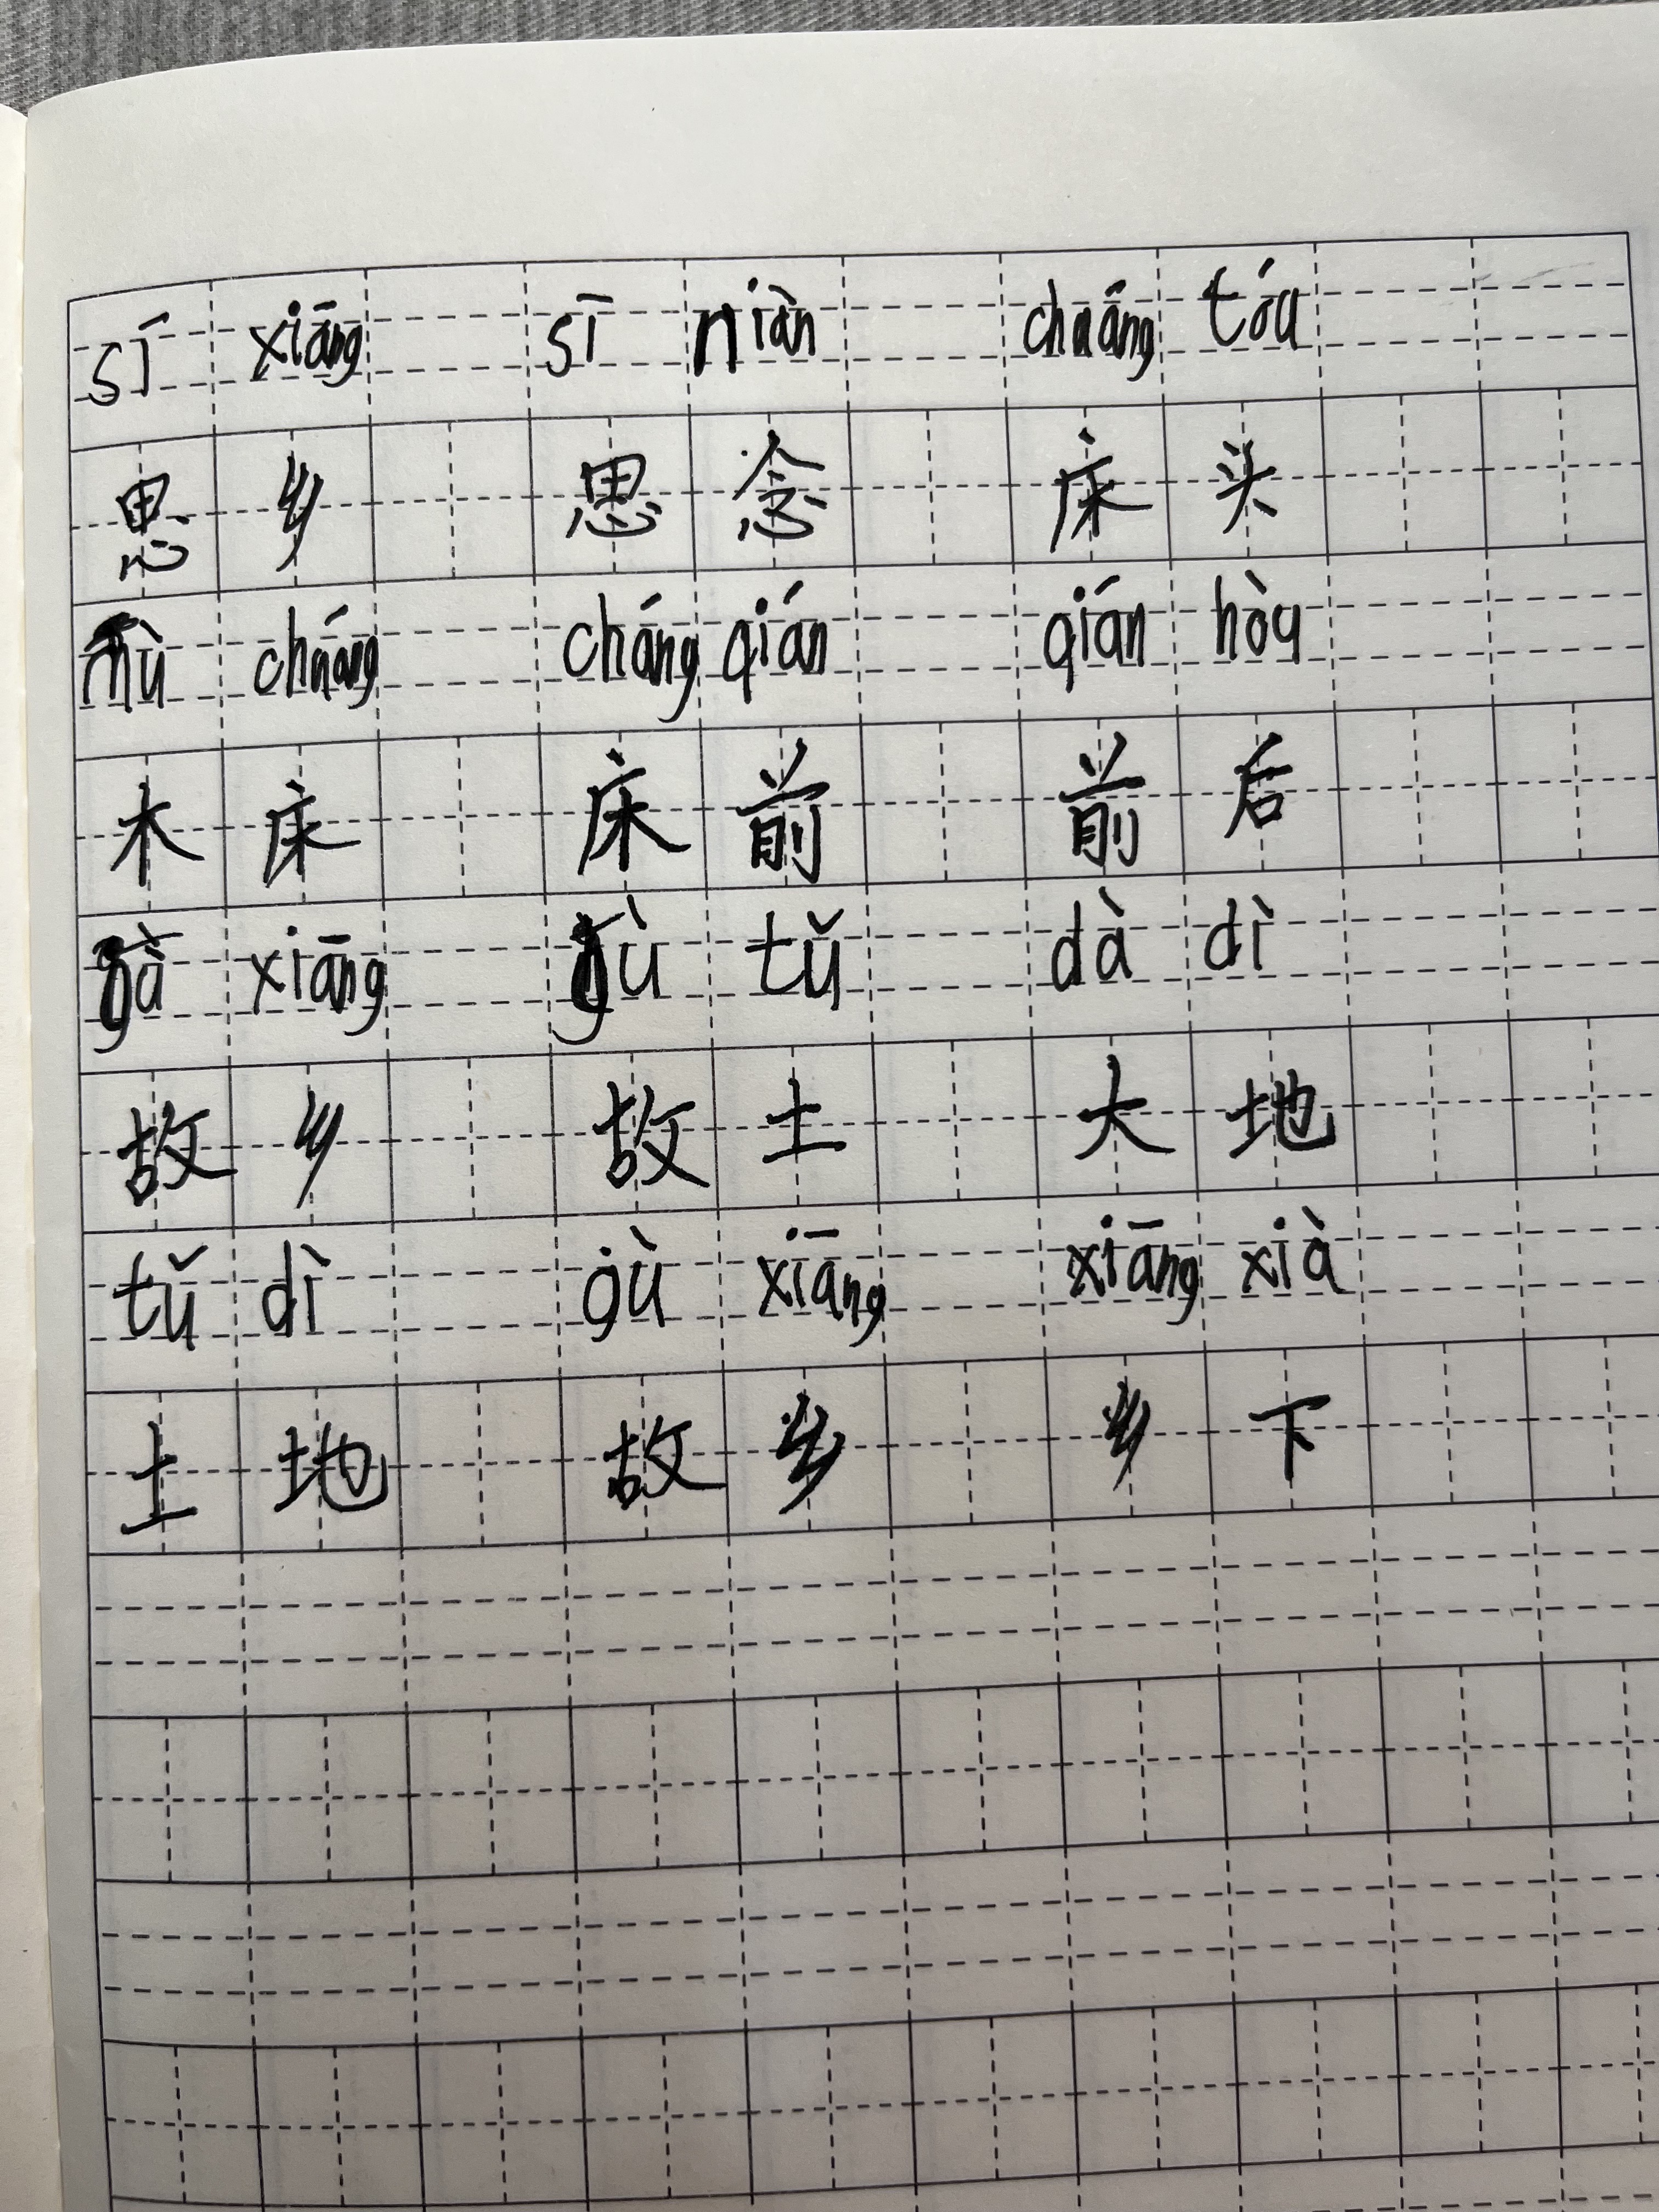 sī xiāng sī niàn chuáng tóu
思乡 思念 床头
mù chuáng cháng qián qián hòu
木床 床前 前后
gà xiāng gù tǔ dà dì
故乡 故土 大地
tǔ dì gù xiāng xiāng xià
土地 故乡 乡下